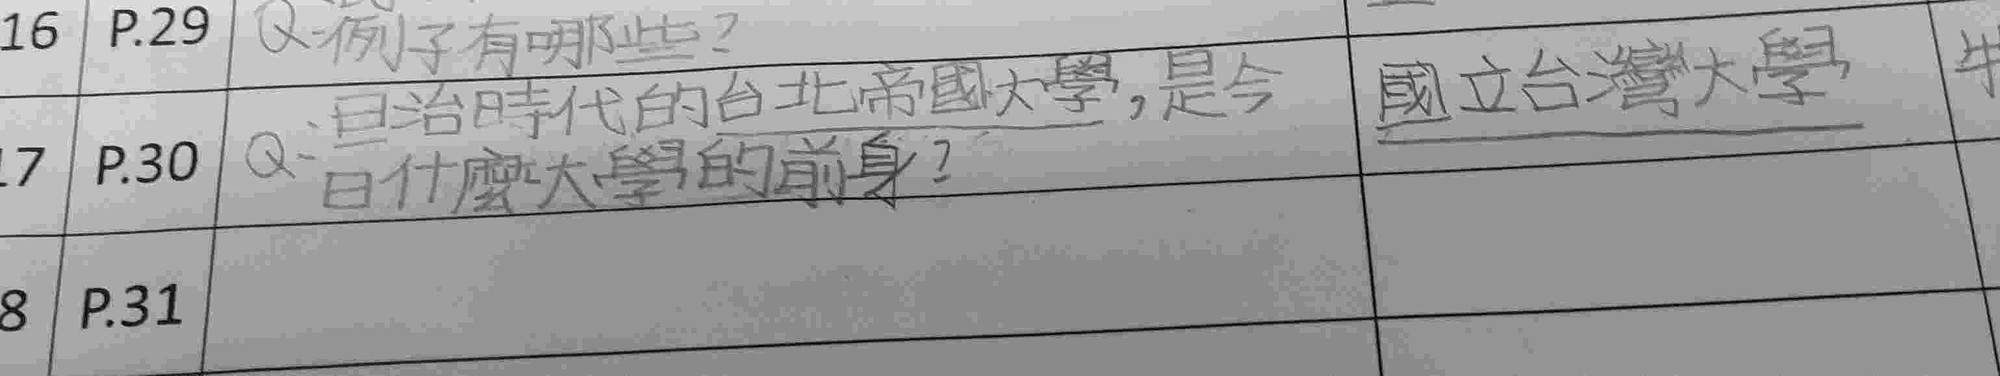 16 P.29 Q:例子有哪些?
17 P.30 Q:日治時代的台北帝國大學,是今 國立台灣大學
日什麼大學的前身?
8 P.31